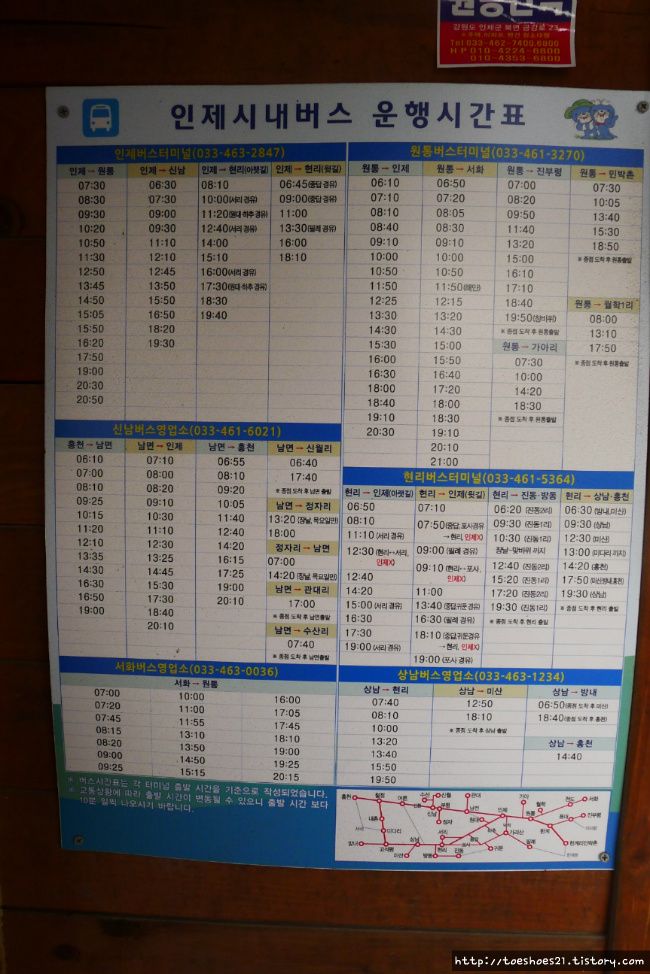 강원도 인제군 북면 금강로 23
Tel 033-462-7400,6800
H·P 010-4224-6800
010-4353-6800
인제시내버스 운행시간표
인제버스터미널(033-463-2847)
인제 → 원통
07:30
08:30
09:30
10:20
10:50
11:30
12:50
13:45
14:50
15:05
15:50
16:20
17:50
19:00
20:30
20:50
인제 → 신남
06:30
07:30
09:00
09:30
11:10
12:10
12:45
13:50
15:50
16:50
18:20
19:30
인제 → 현리(아랫길)
08:10
10:00(서리 경유)
11:20(원대·하추 경유)
12:40(서리 경유)
14:00
15:10
16:00(서리 경유)
17:30(원대·하추 경유)
18:30
19:40
인제 → 현리(윗길)
06:45(중답 경유)
09:00(중답 경유)
11:00
13:30(필례 경유)
16:00
18:10
원통버스터미널(033-461-3270)
원통 → 인제
06:10
07:10
08:10
08:40
09:10
10:00
10:50
11:50
12:25
13:30
14:30
15:30
16:00
16:30
18:00
18:40
19:10
20:30
원통 → 서화
06:50
07:20
08:05
08:30
09:10
10:00
10:50
11:50(해안)
12:15
13:20
14:30
15:00
15:50
16:40
17:20
18:00
18:30
19:10
20:10
21:00
원통 → 진부령
07:00
08:20
09:50
11:40
13:20
15:00
16:10
17:10
18:40
19:50(장바위)
※ 종점 도착 후 원통출발
원통 → 가아리
07:30
10:00
14:20
18:30
※ 종점 도착 후 원통출발
원통 → 민박촌
07:30
10:05
13:40
15:30
18:50
※ 종점 도착 후 원통출발
원통 → 월학1리
08:00
13:10
17:50
※ 종점 도착 후 원통출발
신남버스영업소(033-461-6021)
홍천 → 남면
06:10
07:00
08:10
09:25
10:15
11:20
12:10
13:35
14:30
16:30
16:50
19:00
남면 → 인제
07:10
08:00
08:20
09:10
10:30
11:10
12:30
13:25
14:45
15:30
17:30
18:40
20:10
남면 → 홍천
06:55
08:10
09:20
10:05
11:40
12:40
14:20
16:15
17:25
19:00
20:10
남면 → 신월리
06:40
17:40
※ 종점 도착 후 남면 출발
남면 → 정자리
13:20(장날, 목요일만)
18:00
정자리 → 남면
07:00
14:20(장날, 목요일만)
남면 → 관대리
17:00
※ 종점 도착 후 남면출발
남면 → 수산리
07:40
※ 종점 도착 후 남면출발
현리버스터미널(033-461-5364)
현리 → 인제(아랫길)
06:50
08:10
11:10(서리 경유)
12:30(현리↔서리,
인제X)
12:40
14:20
15:00(서리 경유)
16:30
17:30
19:00(서리 경유)
현리 → 인제(윗길)
07:10
07:50(중답,포사경유
→현리, 인제X)
09:00(필례 경유)
09:10(현리↔포사,
인제X)
11:00
13:40(중답귀둔 경유)
16:30(필례 경유)
18:10(중답귀둔경유
→현리, 인제X)
19:00(포사 경유)
현리 → 진동·방동
06:20(진동2리)
09:30(진동1리)
10:30(진동1리)
장날-맞바위 까지
12:40(진동2리)
15:20(진동1리)
17:20(진동2리)
19:30(진동1리)
※ 종점 도착 후 현리 출발
현리 → 상남·홍천
06:30(방내,미산)
09:30(상남)
12:30(미산)
13:00(미다리 까지)
14:20(홍천)
17:50(미산방내홍천)
19:30(상남)
※ 종점 도착 후 현리 출발
서화버스영업소(033-463-0036)
서화 → 원통
07:00
07:20
07:45
08:15
08:20
09:00
09:25
10:00
11:00
11:55
13:10
13:50
14:50
15:15
16:00
17:05
17:45
18:10
19:00
19:40
20:15
상남버스영업소(033-463-1234)
상남 → 현리
07:40
08:10
10:00
13:20
13:40
15:50
19:50
상남 → 미산
12:50
18:10
※ 종점 도착 후 상남 출발
상남 → 방내
06:50(종점 도착 후 미산)
18:40(종점 도착 후 홍천)
상남 → 홍천
14:40
※ 버스시간표는 각 터미널 출발 시간을 기준으로 작성되었습니다.
※ 교통상황에 따라 출발 시간이 변동될 수 있으니 출발 시간 보다
10분 일찍 나오시기 바랍니다.
http://toeshoes21.tistory.com